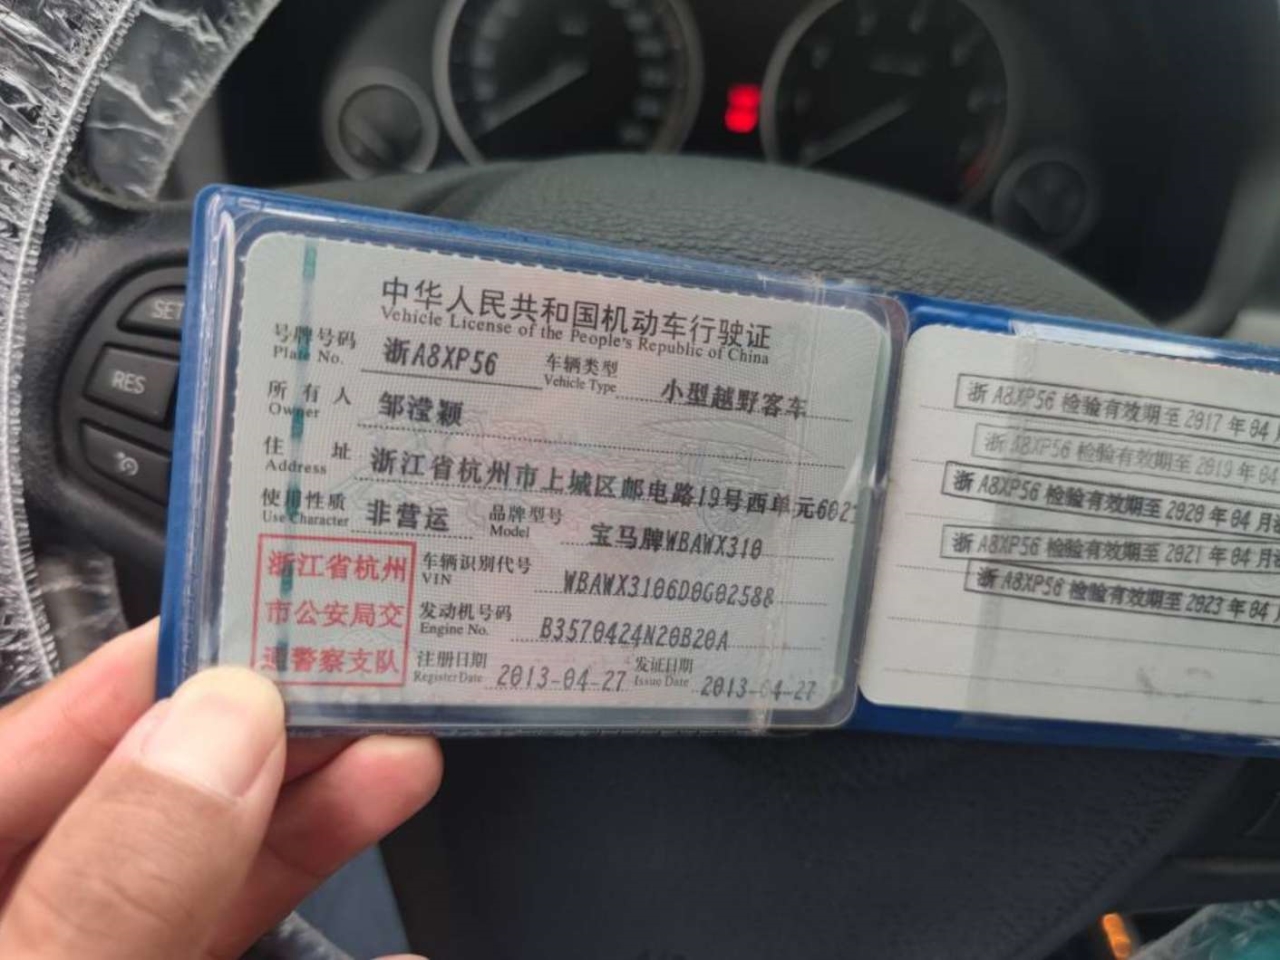 SET
RES
中华人民共和国机动车行驶证
Vehicle License of the People's Republic of China
号牌号码 浙A8XP56 车辆类型 小型越野客车
Plate No. Vehicle Type
所有人 邹滢颖
Owner
住址 浙江省杭州市上城区邮电路19号西单元602
Address
使用性质 非营运 品牌型号 宝马牌WBAWX310
Use Character Model
浙江省杭州
市公安局交
通警察支队
车辆识别代号 WBAWX3106D0G02588
VIN
发动机号码 B3570424N20B20A
Engine No.
注册日期 2013-04-27 发证日期 2013-04-27
Register Date Issue Date
浙A8XP56 检验有效期至 2017年04月
浙A8XP56 检验有效期至 2019年04
浙A8XP56 检验有效期至 2020年04月
浙A8XP56 检验有效期至 2021年04月
浙A8XP56 检验有效期至 2023年04月